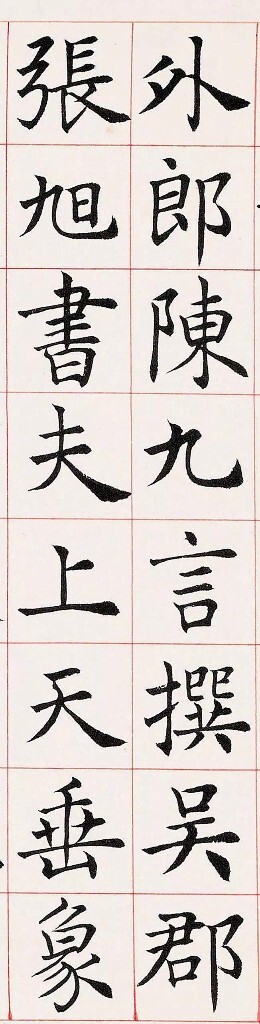 外郎陳九言撰吳郡
張旭書夫上天垂象